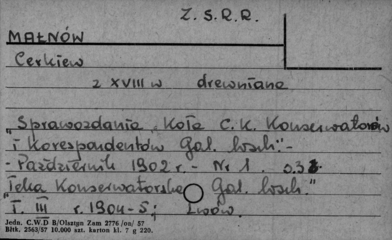 Z. S. R. R.
MAŁNÓW
Cerkiew
z XVIII w drewniana
„Sprawozdania Koła C. K. Konserwatorów
i Korespondentów Gal. wsch." -
- Październik 1902 r. - Nr 1. s. 3
"Teka Konserwatorska Gal. wsch."
"T. III r. 1904-5; Lwów.
Jedn. C.W.D B/Olsztyn Zam 2776 /on/ 57
Błtk. 2563/57 10.000 szt. karton kl. 7 g 220.